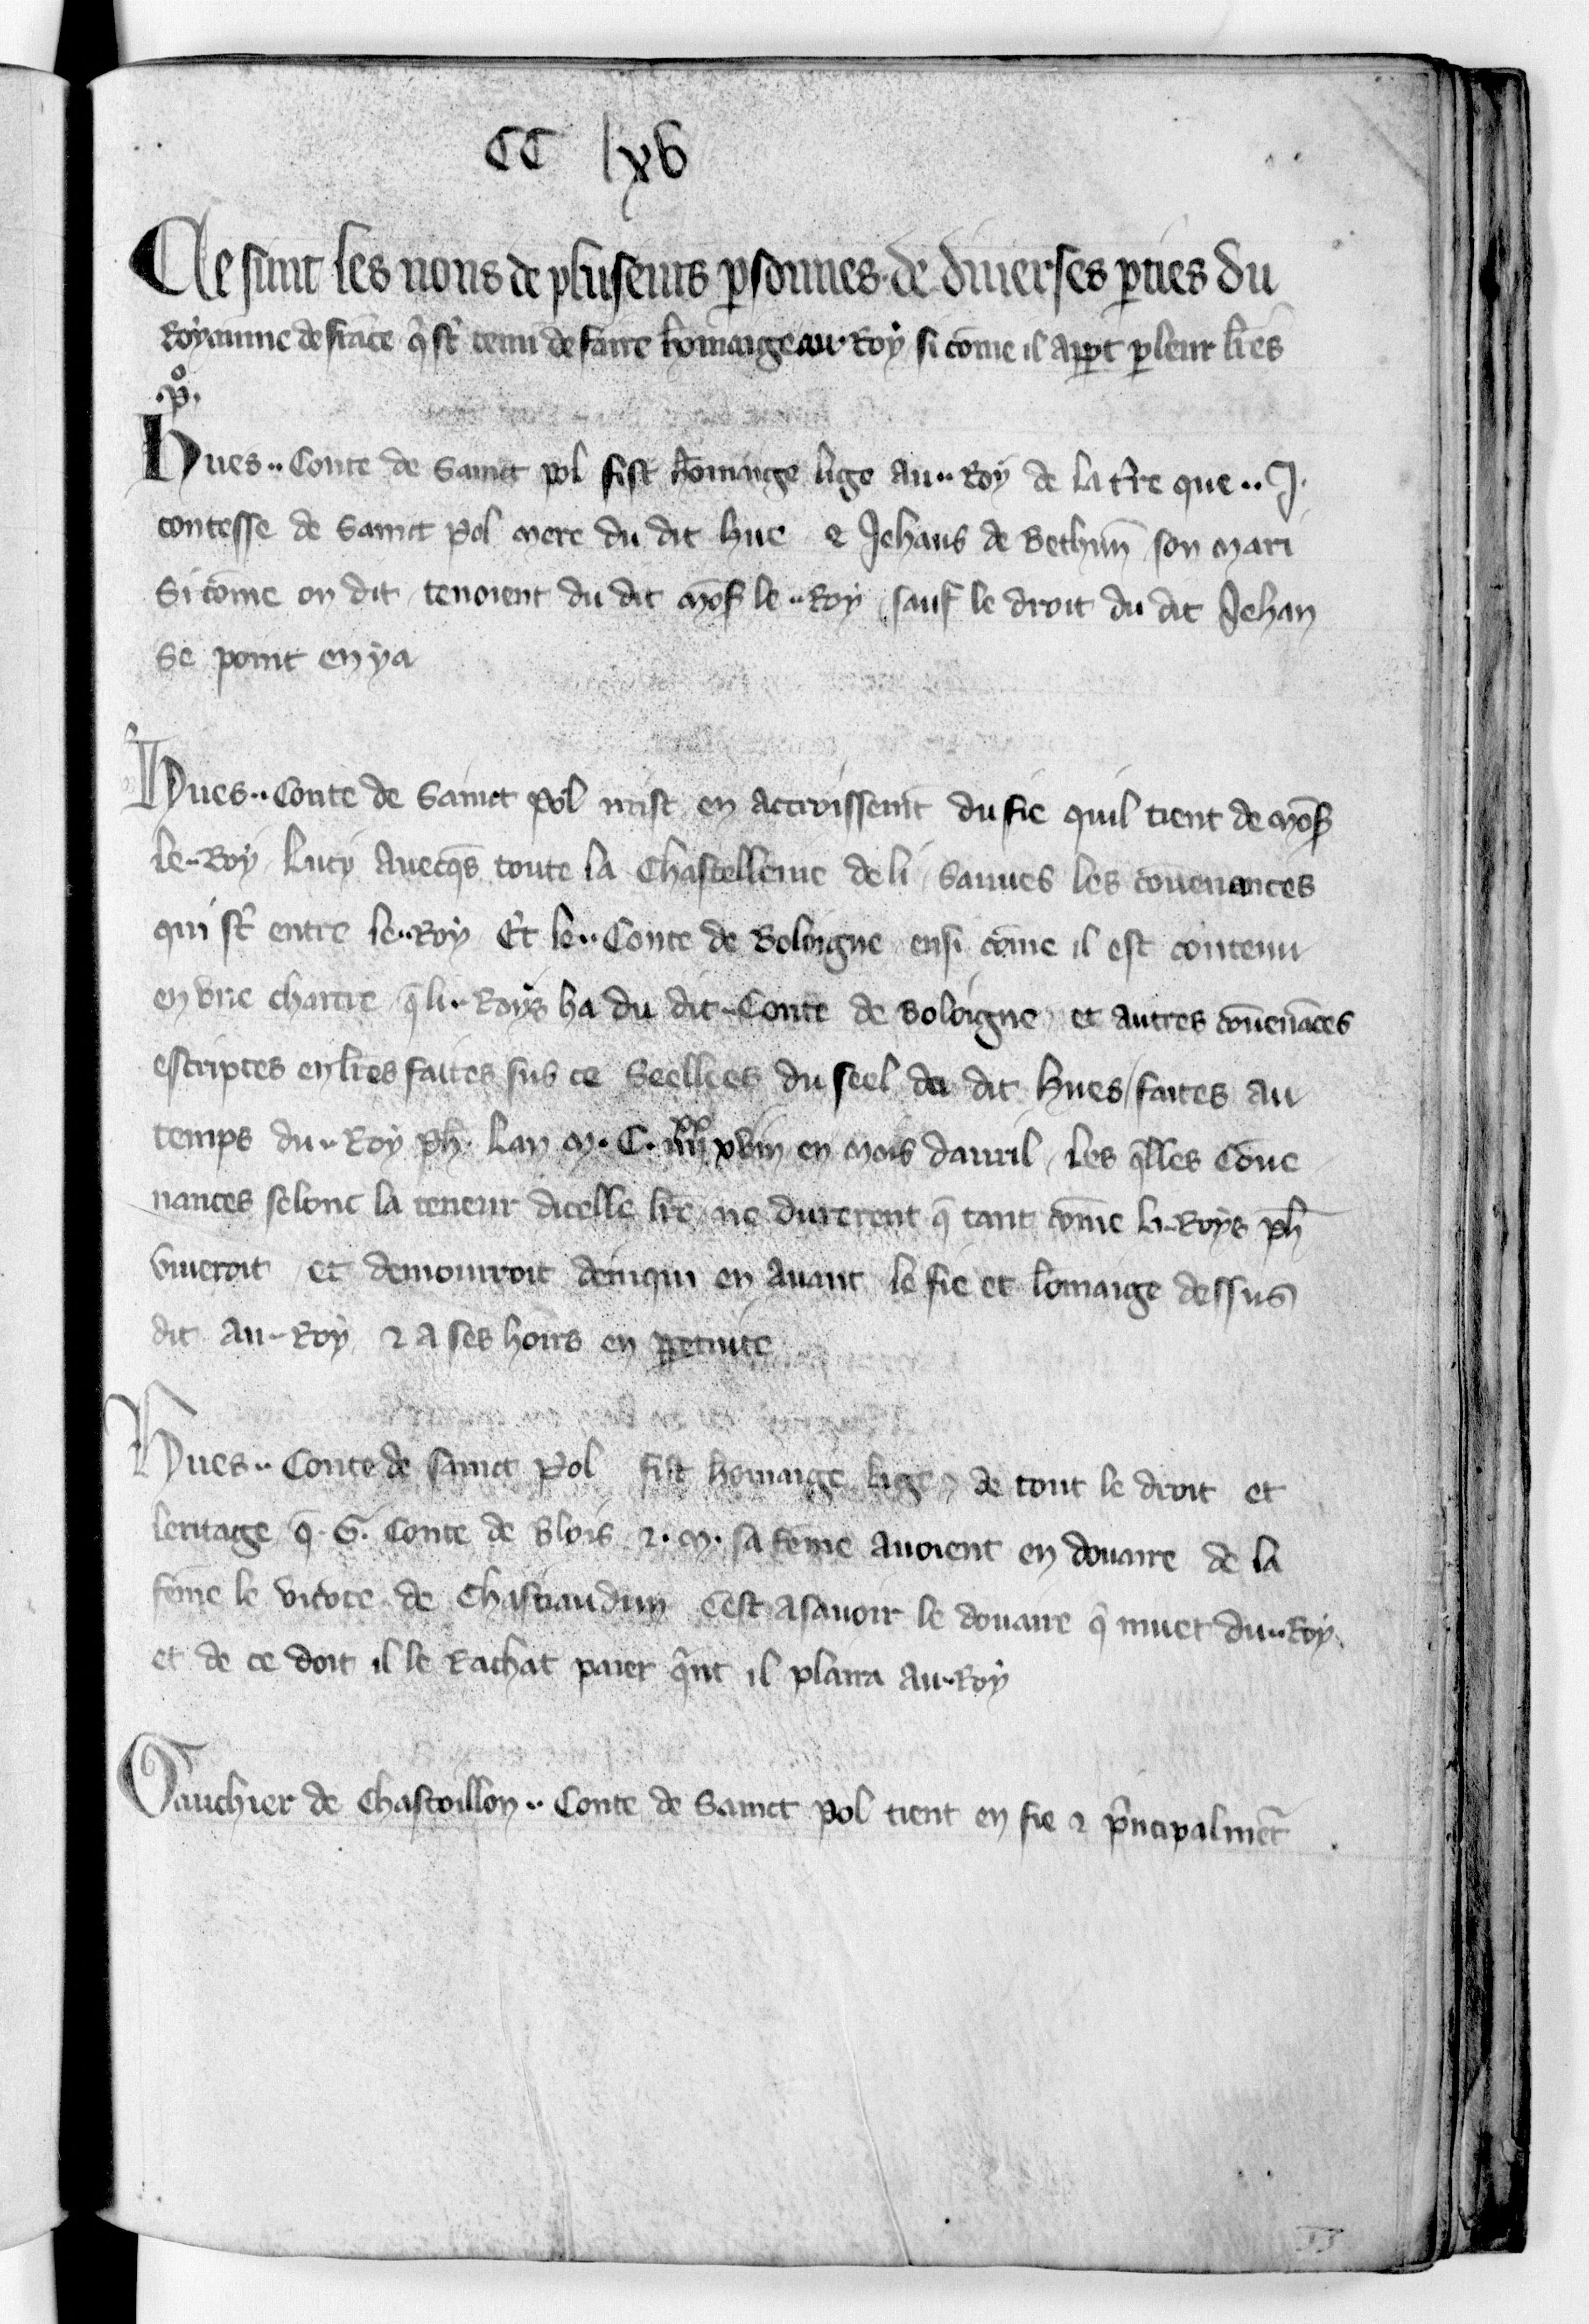 CC lxv
Ce sunt les nons de pluseurs psonnes de diuerses pties du
Royaume de france q̃ st̃ tenu de faire homaige au Roy si cõme il appt p leur lr̃es
.p̊.
Hues .. Conte de Sainct pol fist homaige lige au .. Roy de la t̃re que .. J.
contesse de Sainct pol mere du dit hue & Jehans de Bethuñ son mari
Si cõme on dit tenoient du dit mõs̃ le .. Roy / sauf le droit du dit Jehan
Se point en ya
Hues .. Conte de Sainct pol mist en accroissemt̃ du fie quil tient de mõs̃
le .. Roy Lucy auecq̃s toute la Chastellenie de li / Sauues les couenances
qui st̃ entre le .. Roy Et le .. Conte de Boloigne ensi cõme il est contenu
en vne chartre q̃ li .. Roys ha du dit .. Conte de Boloigne et autres couenãces
escriptes en lr̃es faites sus ce Seellees du seel du dit hues / faites au
temps du .. Roy ph̃. Lan m. C. iiii xx xviii en mois dauril / Les q̃lles Coue
nances selonc la teneur dicelle lr̃e ne durerent q̃ tant cõme li .. Roys ph̃
viueroit et demourroit denqui en auant le fie et lomaige dessus
dit au .. Roy & a ses hoirs en ppetuite
Hues .. Conte de sainct Pol fist homaige lige de tout le droit et
leritaige q̃ .G. Conte de Blois & .m. sa feme auoient en douaire de la
feme le vicõte de Chastiaudun Cest asauoir le douaire q̃ muet du .. Roy
et de ce doit il le Rachat paier q̃nt il plaira au .. Roy
Gauchier de Chastoillon .. Conte de Sainct pol tient en fie & p̃ncipalmẽt